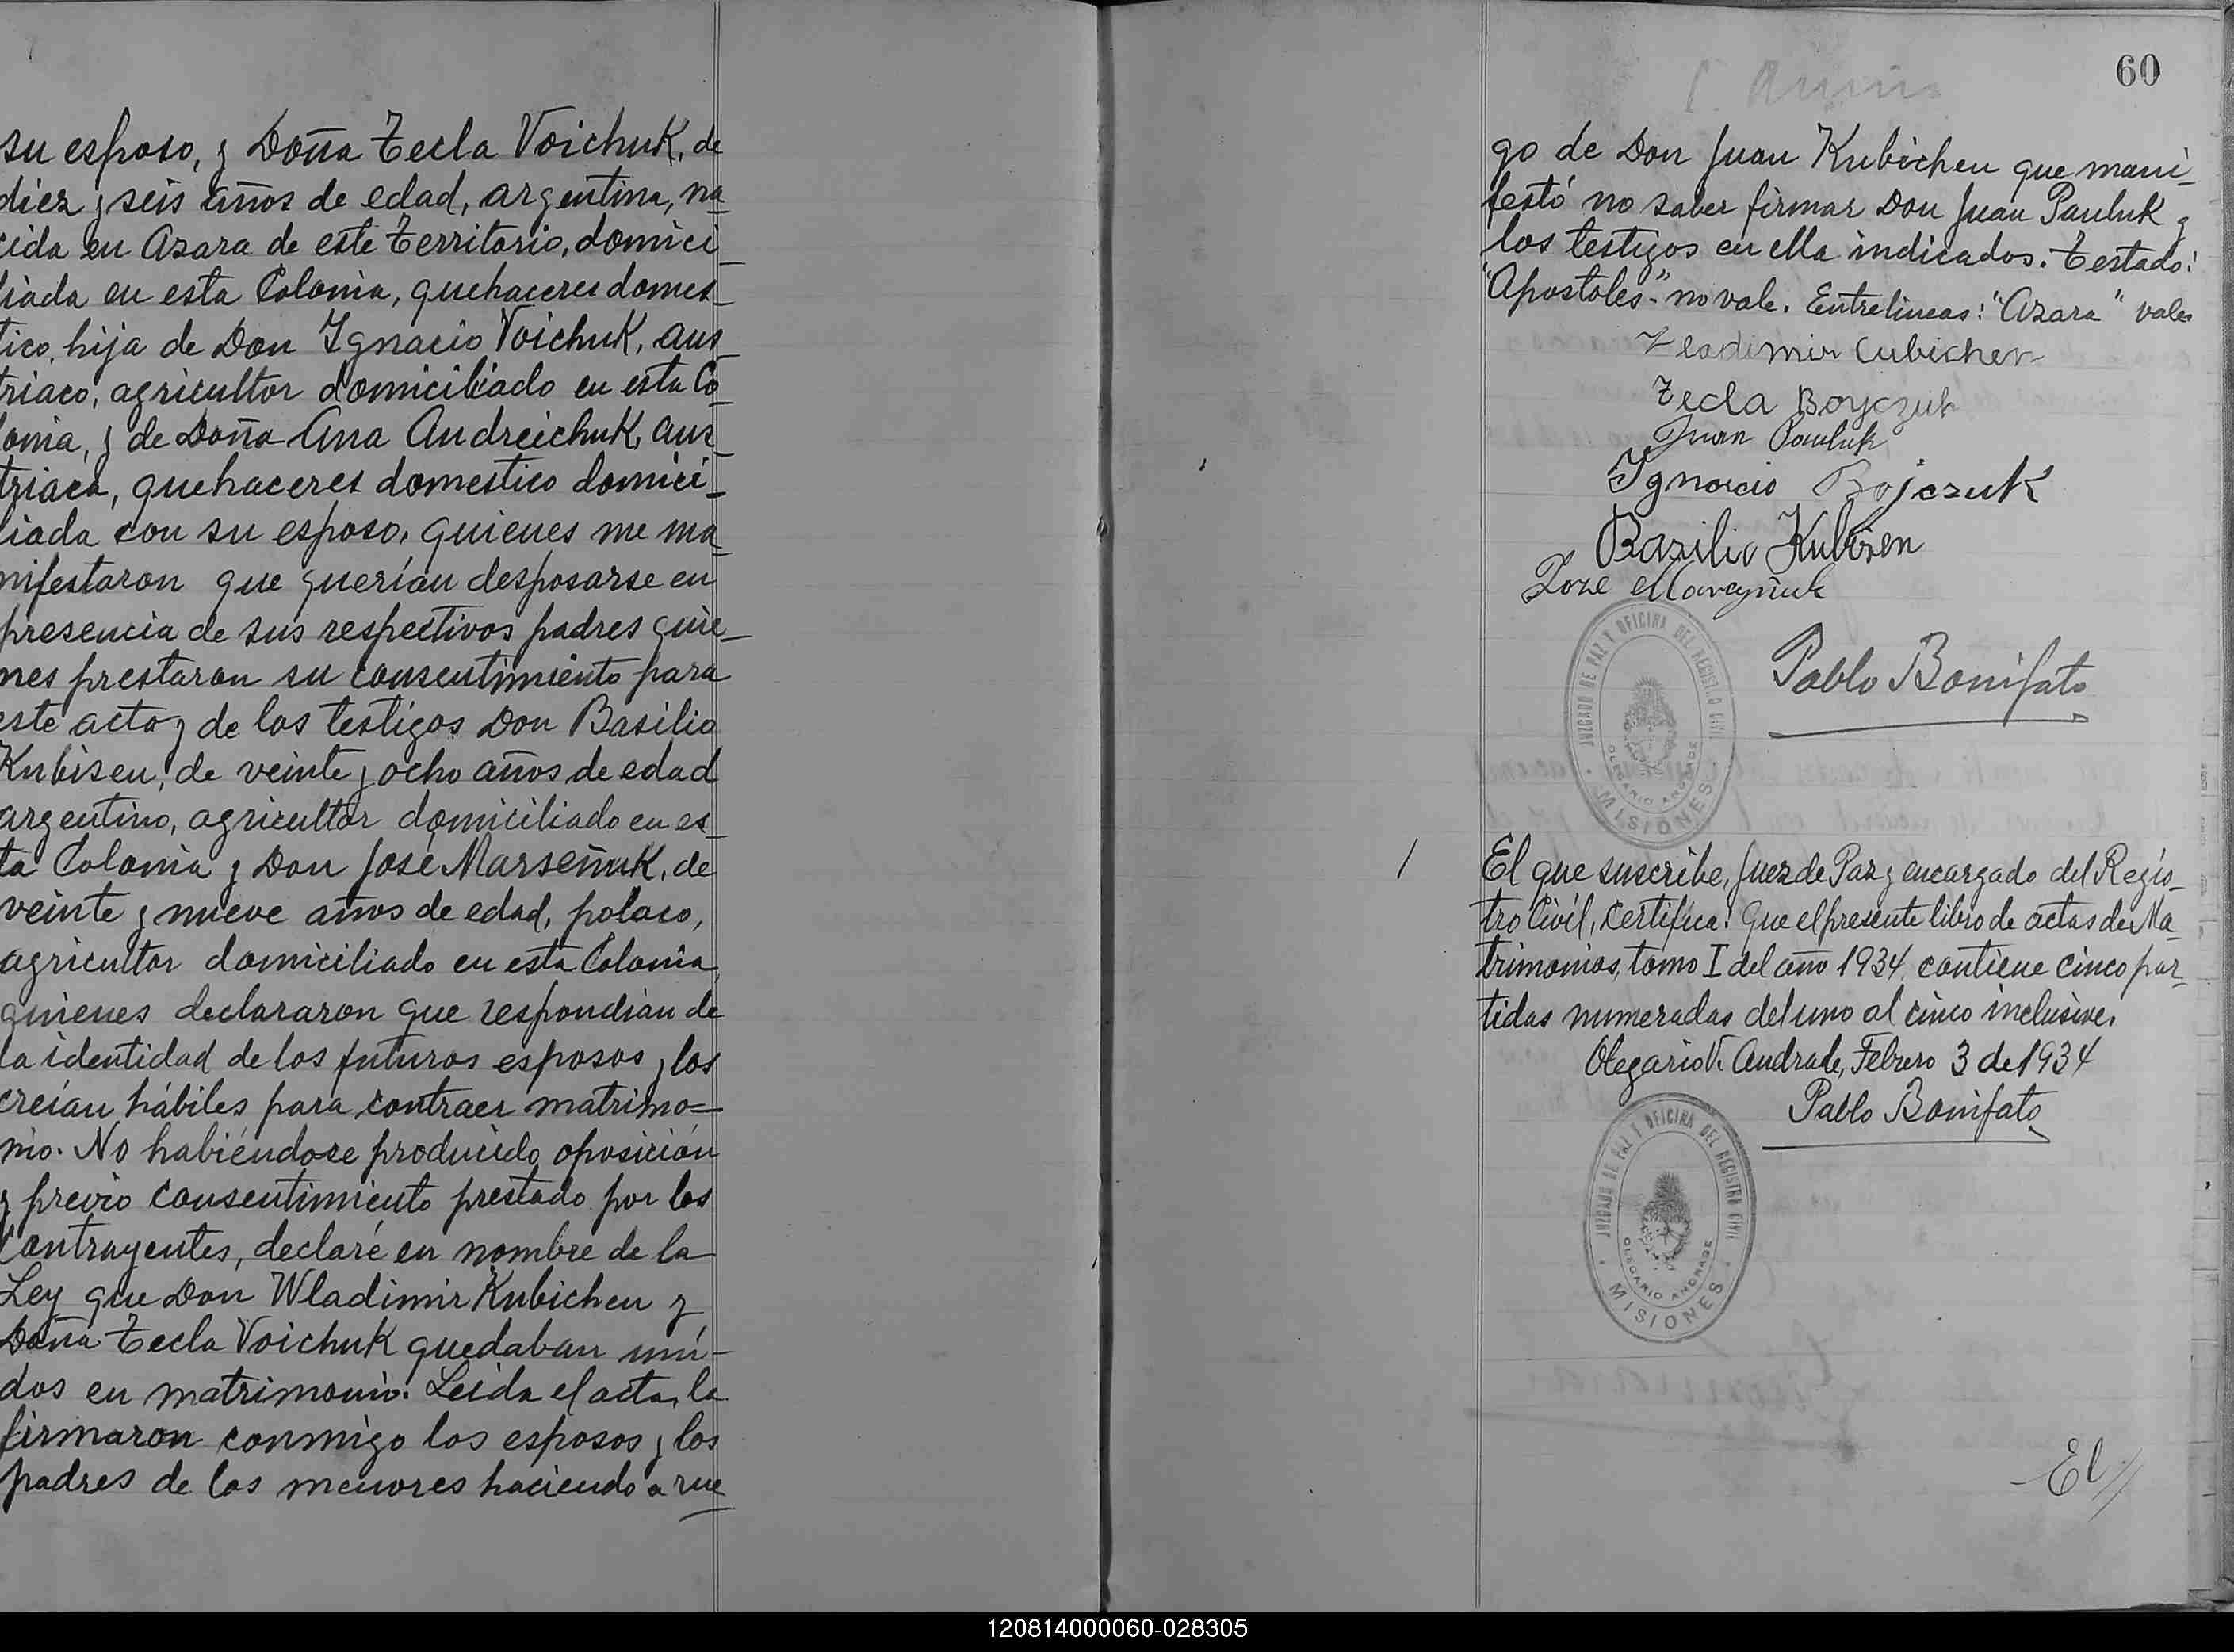 su esposo, y Doña Tecla Voichuk, de
diez y seis años de edad, argentina, na_
cida en Azara de este Territorio, domici_
liada en esta Colonia, quehaceres domes_
tico, hija de Don Ignacio Voichuk, aus_
triaco, agricultor domiciliado en esta Co_
lonia, y de Doña Ana Andreichuk, aus_
triaca, quehaceres domestico domici_
liada con su esposo, quienes me ma_
nifestaron que querían desposarse en
presencia de sus respectivos padres quie_
nes prestaron su consentimiento para
este acto y de los testigos Don Basilio
Kubisen, de veinte y ocho años de edad
argentino, agricultor domiciliado en es_
ta Colonia y Don José Marseñuk, de
veinte y nueve años de edad, polaco,
agricultor domiciliado en esta Colonia,
quienes declararon que respondían de
la identidad de los futuros esposos y los
creían hábiles para contraer matrimo=
nio. No habiéndose producido oposición
y previo consentimiento prestado por los
contrayentes, declaré en nombre de la
Ley que Don Wladimir Kubichen y
Doña Tecla Voichuk quedaban uni-
dos en matrimonio. Leída el acta, la
firmaron conmigo los esposos y los
padres de los menores haciendo a rue
60
go de Don Juan Kubichen que mani_
festó no saber firmar Don Juan Pauluk y
los testigos en ella indicados. Testado:
"Apostoles"- no vale. Entrelineas: "Azara" vale
Vladimir Cubichen
Tecla Boyczuk
Juan Pauluk
Ignacio Bojczuk
Bazilio Kubisen
Pablo Bonifato
JUZGADO DE PAZ Y OFICINA DEL REGISTRO CIVIL
OLEGARIO ANDRADE
MISIONES
El que suscribe, Juez de Paz y encargado del Regis_
tro Civil, Certifica: Que el presente libro de actas de Ma_
trimonios, tomo I del año 1934, contiene cinco par_
tidas numeradas del uno al cinco inclusive.
Olegario V. Andrade, Febrero 3 de 1934
Pablo Bonifato
JUZGADO DE PAZ Y OFICINA DEL REGISTRO CIVIL
OLEGARIO ANDRADE
MISIONES
El//
120814000060-028305